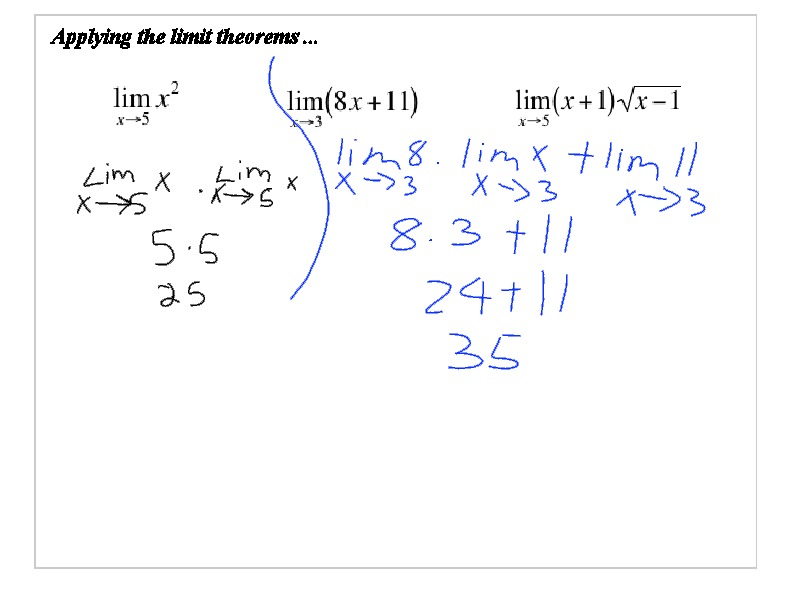 Applying the limit theorems...
lim x→5 x²
lim x→3 (8x+11)
lim x→5 (x+1)√x−1
Lim x→5 x · Lim x→5 x
5·5
25
lim x→3 8 · lim x→3 x + lim x→3 11
8·3+11
24+11
35